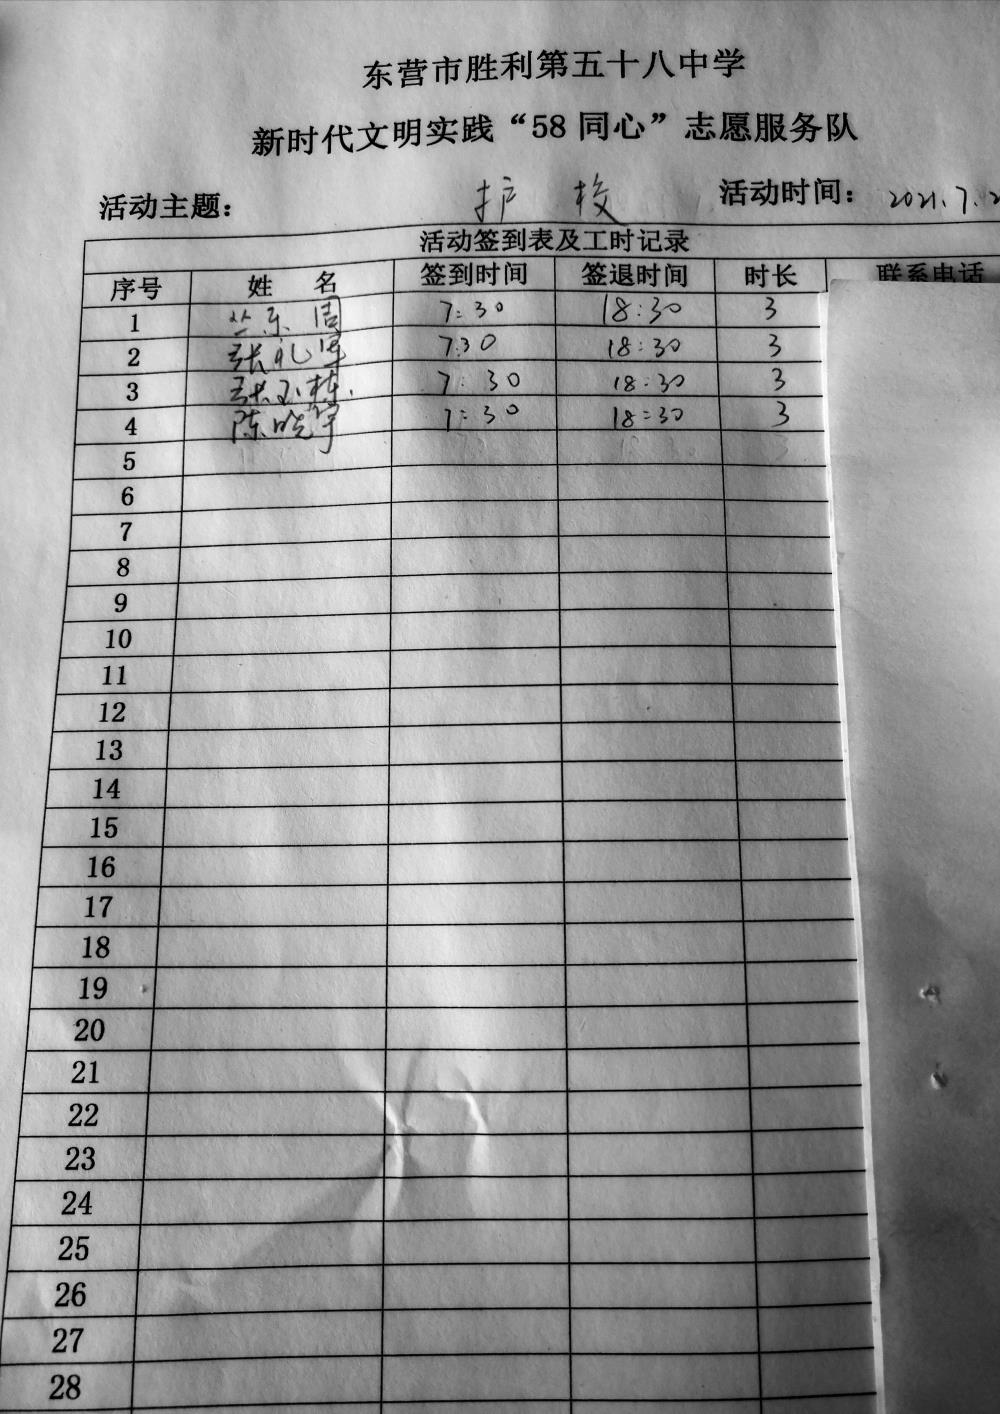 东营市胜利第五十八中学
新时代文明实践“58同心”志愿服务队
活动主题： 护 校 活动时间： 2021.7.2
活动签到表及工时记录
序号 姓 名 签到时间 签退时间 时长 联系电话
1 7:30 18:30 3
2 张礼 730 18:30 3
3 张玉栋. 7:30 18:30 3
4 陈晓宇 7:30 18:30 3
5
6
7
8
9
10
11
12
13
14
15
16
17
18
19
20
21
22
23
24
25
26
27
28